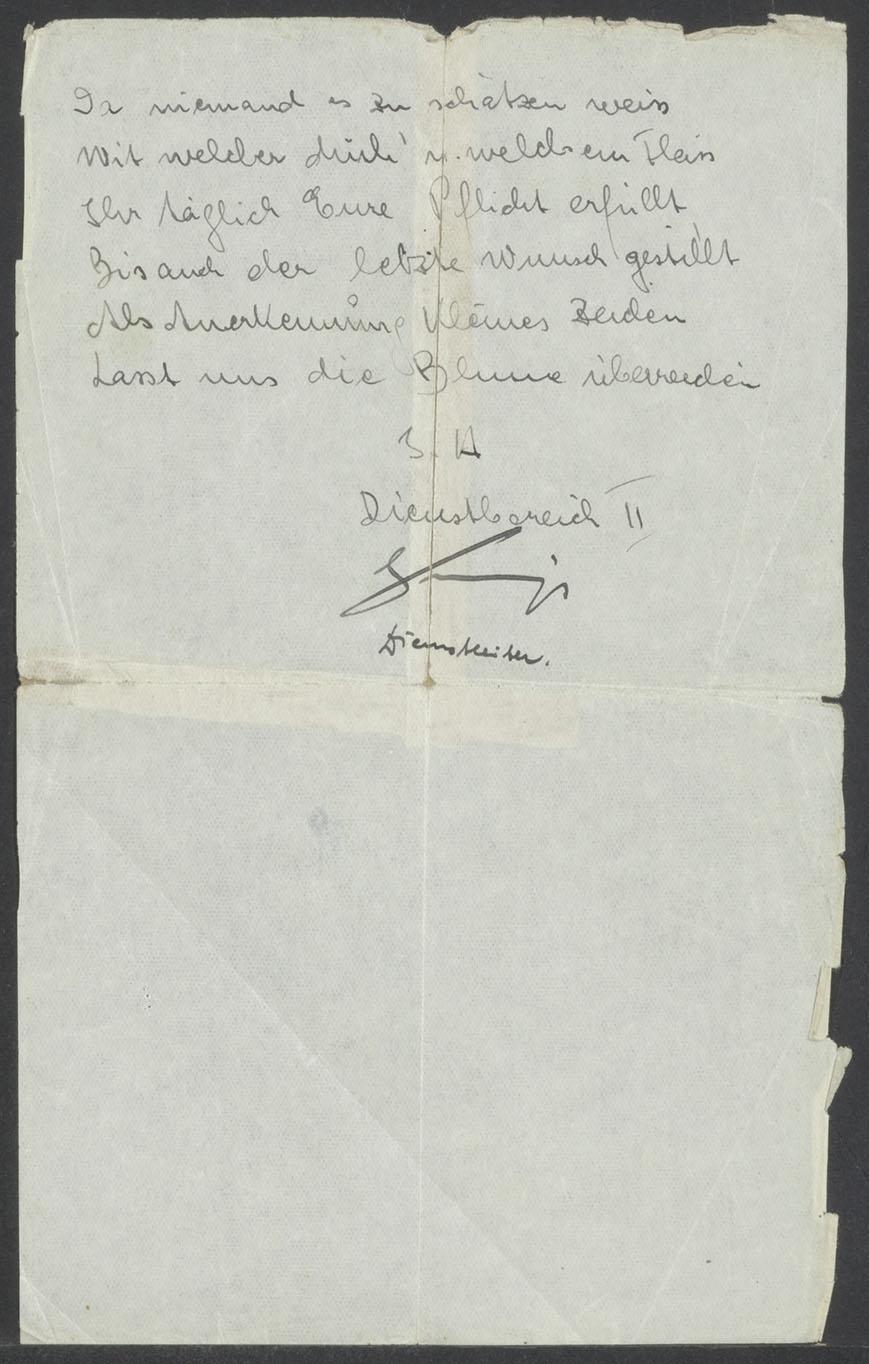 Da niemand es zu schätzen weiss
Mit welcher Müh' u. welchem Fleiss
Ihr täglich Eure Pflicht erfüllt
Bis auch der letzte Wunsch gestillt
Als Anerkennung kleines Zeichen
Lasst uns die Blume überreichen
Dienstbereich II
Dienstleiter.